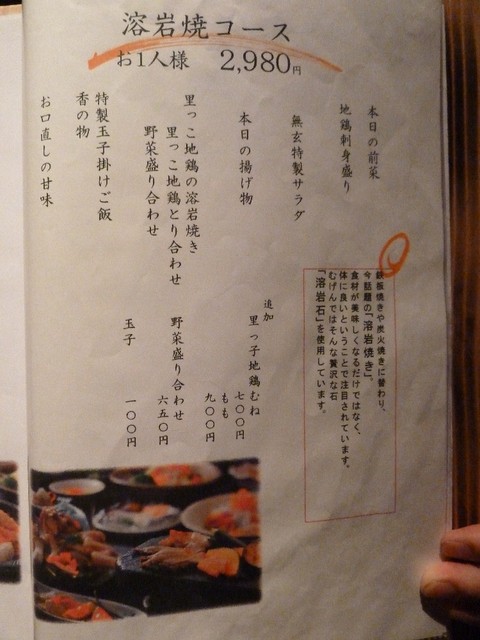 溶岩焼コース
お1人様 2,980円
本日の前菜
地鶏刺身盛り
無玄特製サラダ
本日の揚げ物
里っこ地鶏の溶岩焼き
里っこ地鶏とり合わせ
野菜盛り合わせ
特製玉子掛けご飯
香の物
お口直しの甘味
鉄板焼きや炭火焼きに替わり、
今話題の「溶岩焼き」、
食材が美味しくなるだけではなく、
体に良いということで注目されています。
むげんではそんな贅沢な石
「溶岩石」を使用しています。
追加
里っ子地鶏むね 七〇〇円
もも 九〇〇円
野菜盛り合わせ 六五〇円
玉子 一〇〇円